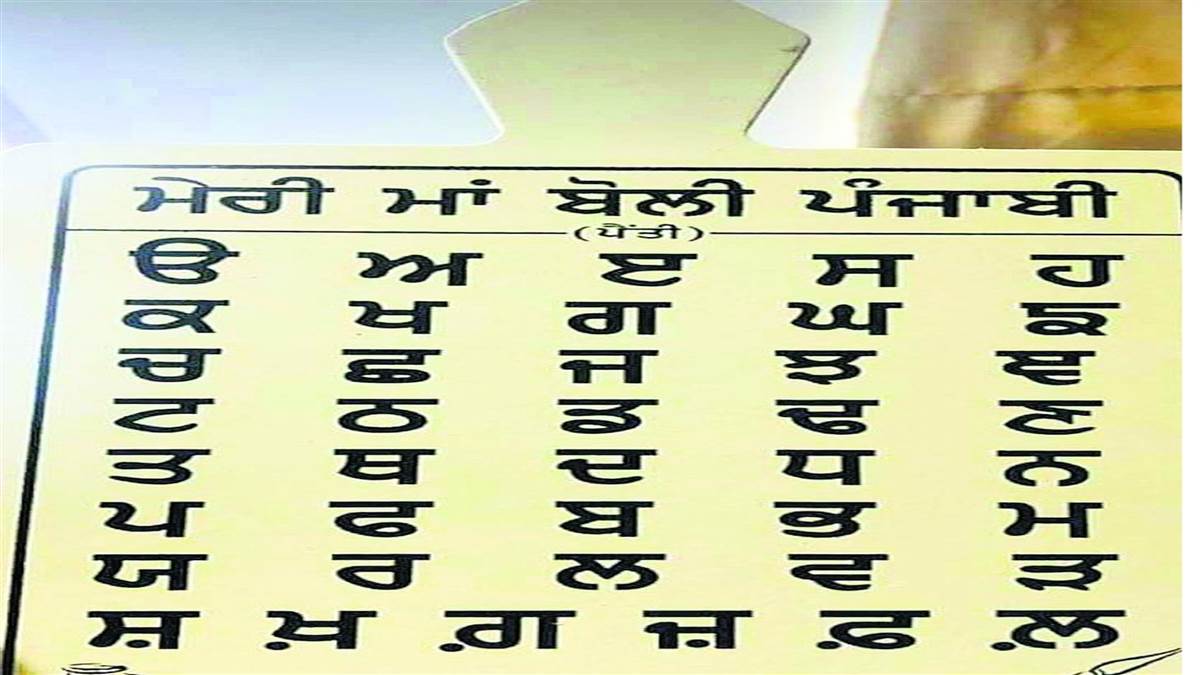 ਮੇਰੀ ਮਾਂ ਬੋਲੀ ਪੰਜਾਬੀ
(ਪੈਂਤੀ)
ੳ ਅ ੲ ਸ ਹ
ਕ ਖ ਗ ਘ ਙ
ਚ ਛ ਜ ਝ ਞ
ਟ ਠ ਡ ਢ ਣ
ਤ ਥ ਦ ਧ ਨ
ਪ ਫ ਬ ਭ ਮ
ਯ ਰ ਲ ਵ ੜ
ਸ਼ ਖ਼ ਗ਼ ਜ਼ ਫ਼ ਲ਼